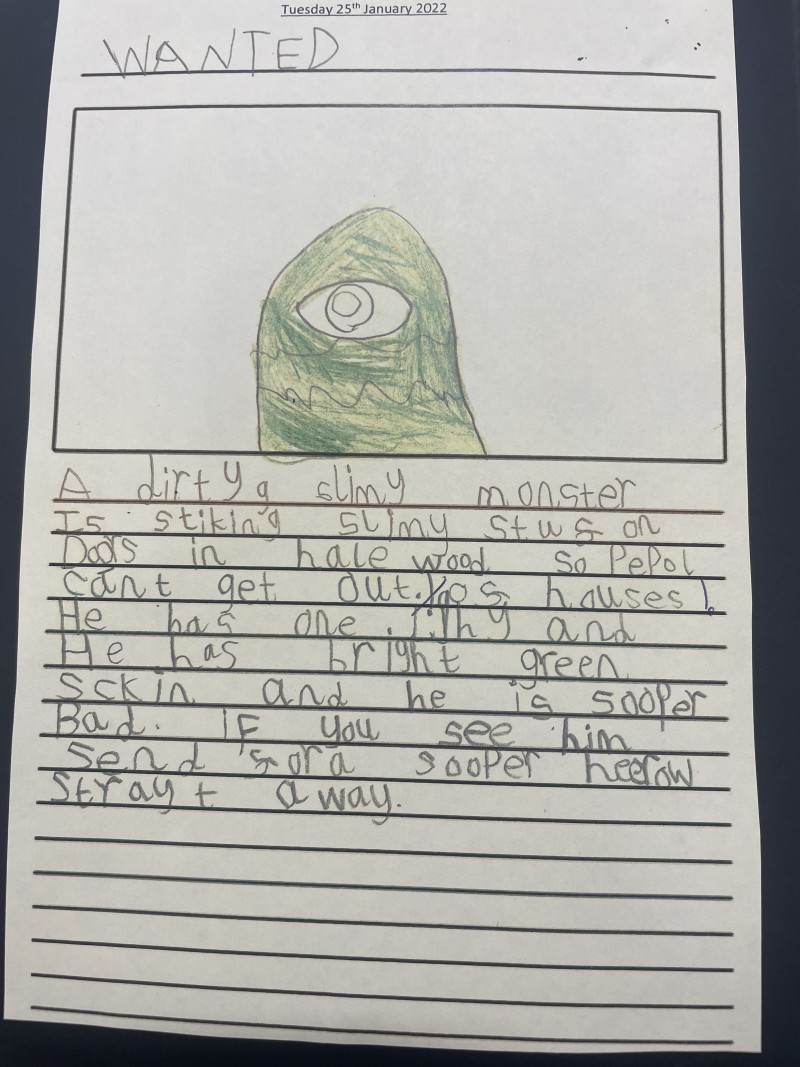 Tuesday 25th January 2022
WANTED
A dirty, slimy monster
Is stiking slimy stuf on
Doors in hale wood so PePol
cant get out. of houses!
He has one. and
He has bright green
sckin and he is sooper
Bad. if you see him
send for a sooper heerow
strayt away.